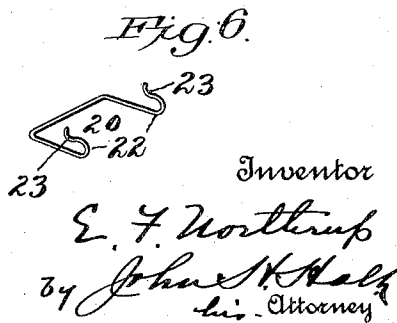 Fig. 6.
23
20
22
23
Inventor
E. F. Northrup
by John H. Holt
his Attorney